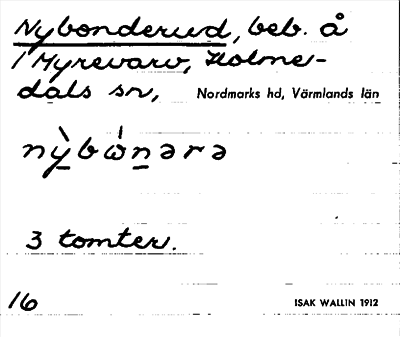 Nybonderud, beb. å
1 Myrevarv, Holme-
dals sn, Nordmarks hd, Värmlands län
nỳbὼnəra
3 tomter.
16 ISAK WALLIN 1912